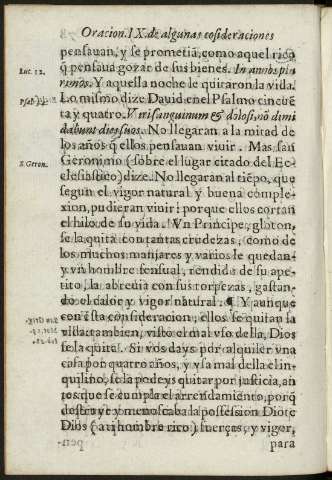 Oracion. IX. de algunas cosideraciones
pensauan, y se prometia, como aquel rico
Luc. 12.
q̃ pensaua gozar de sus bienes. In annos plu
rimos. Y aquella noche le quitaron la vida.
Psal.
Lo mismo dize Dauid en el Psalmo cincuẽ
ta y quatro. Viri sanguinum & dolosi, nõ dimi
dabunt dies suos. No llegaran a la mitad de
los años q̃ ellos pensauan viuir. Mas san
S. Geron.
Geronimo (sobre el lugar citado del Ec-
clesiastico) dize: No llegaran al tiẽpo, que
segun el vigor natural y buena comple-
xion, pudieran viuir: porque ellos cortan
el hilo de su vida. Vn Principe, gloton,
se la quita con tantas crudezas, como de
los muchos manjares y varios le quedan-
y vn hombre sensual, rendido de su ape-
tito, la abreuia con sus torpezas, gastan-
do el calor y vigor natural. ¶ Y aunque
con esta consideracion, ellos se quitan la
vista tambien, visto el mal vso della, Dios
se la quita. Si vos days por alquiler vna
casa por quatro años, y vsa mal della el in-
quilino, se la podeys quitar por justicia, an
tes que se cumpla el arrendamiento, porq̃
destruye y menoscaba la possession. Diote
Dios (a ti hombre rico) fuerças, y vigor,
para